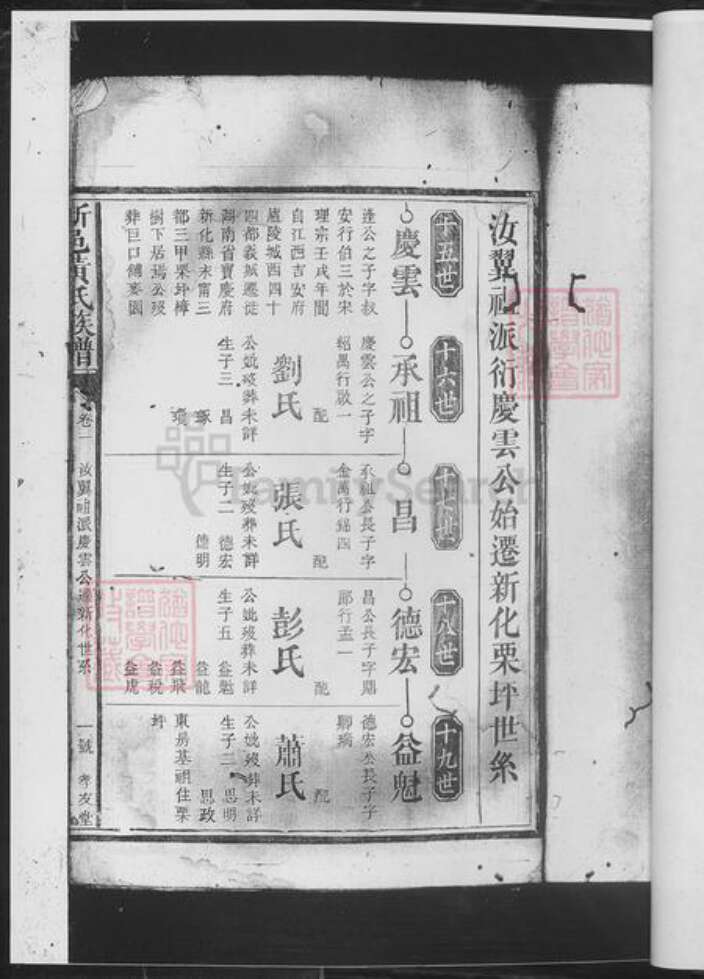 汝翼祖派衍慶雲公始遷新化栗坪世系
十五世
慶雲
逢公之子字叔
安行伯三於宋
理宗壬戌年間
自江西吉安府
廬陵城西四十
四都義城遷徙
湖南省寶慶府
新化縣永甯三
都三甲栗坪樟
樹下居焉公歿
葬巨口鋪茅園
十六世
承祖
慶雲公之子字
紹禺行啟一
配
劉氏
公妣歿葬未詳
生子三 昌
琢
瓊
十七世
昌
承祖公長子字
金萬行錦四
配
張氏
公妣歿葬未詳
生子二 德宏
德明
十八世
德宏
昌公長子字鼎
郎行孟一
配
彭氏
公妣歿葬未詳
生子五 益魁
益龍
益飛
益稅
益虎
十九世
益魁
德宏公長子字
卿瑞
配
蕭氏
公妣歿葬未詳
生子二 思明
思政
東房基祖住栗
坪
新邑黃氏族譜
卷一
汝翼祖派慶雲公遷新化世系
一號
孝友堂
FamilySearch